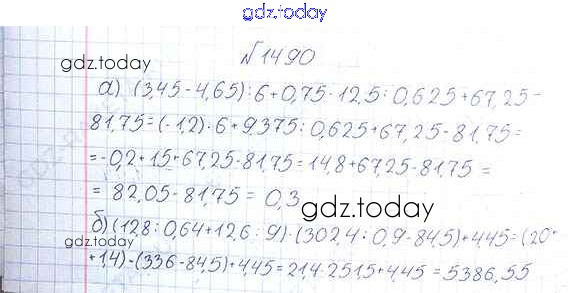 gdz.today
№1490
gdz.today
а) (3,45-4,65):6+0,75·12,5:0,625+67,25-
81,75=(-1,2):6+9,375:0,625+67,25-81,75=
=-0,2+15+67,25-81,75=14,8+67,25-81,75=
= 82,05-81,75= 0,3
gdz.today
б)(12,8:0,64+12,6:9)·(302,4:0,9-84,5)+4,45=(20+
gdz.today
+1,4)·(336-84,5)+4,45=21,4·251,5+4,45=5386,55